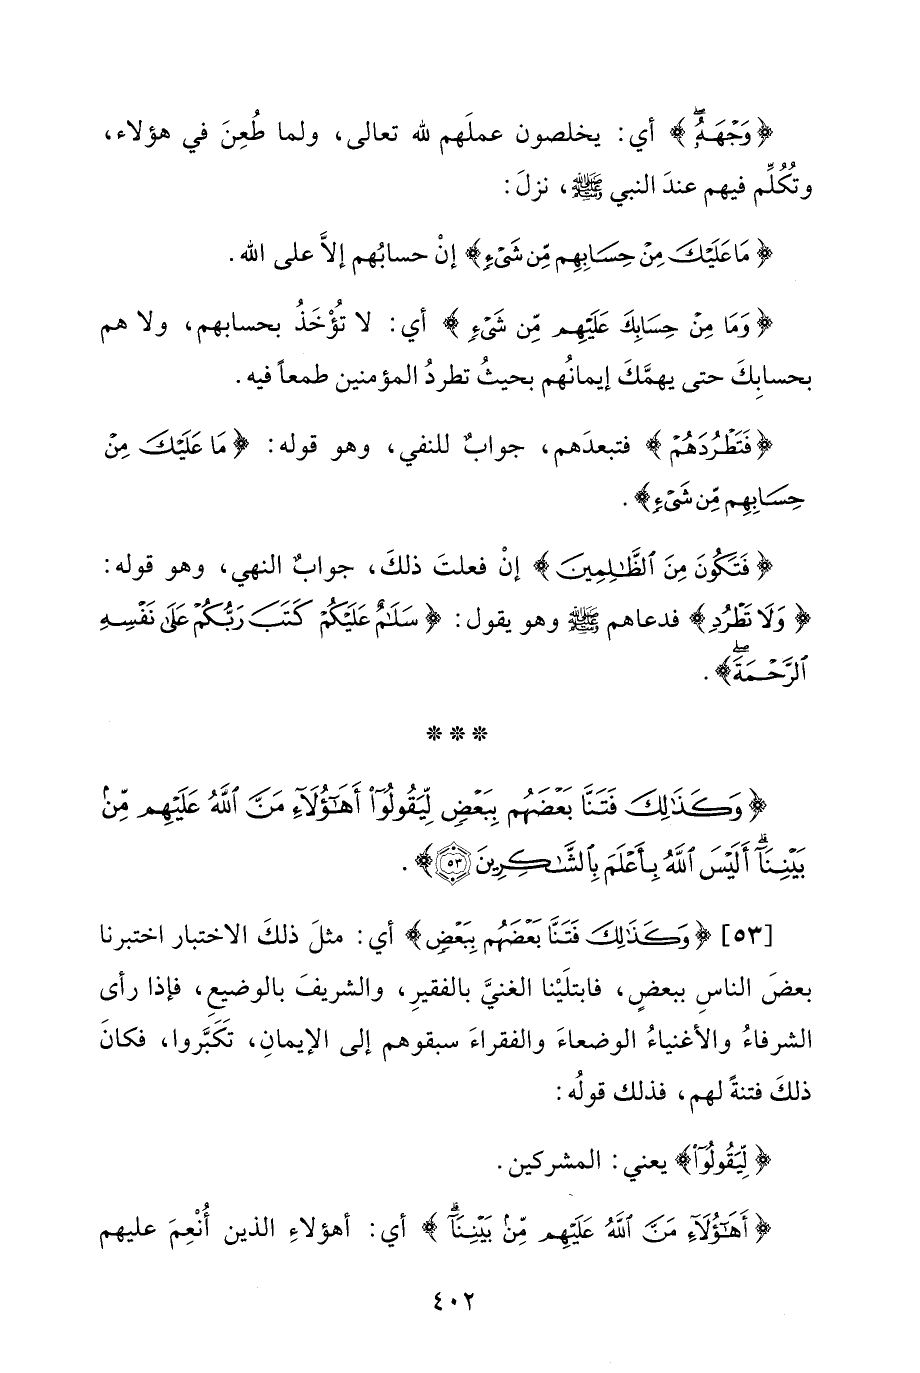 ﴿وَجْهَهُۥۖ﴾ أي: يخلصون عملَهم لله تعالى، ولما طُعِنَ في هؤلاء،
وتُكُلِّم فيهم عندَ النبي ﷺ، نزلَ:
﴿مَا عَلَيْكَ مِنْ حِسَابِهِم مِّن شَيْءٍ﴾ إنْ حسابُهم إلاَّ على الله.
﴿وَمَا مِنْ حِسَابِكَ عَلَيْهِم مِّن شَيْءٍ﴾ أي: لا تُؤْخَذُ بحسابهم، ولا هم
بحسابِكَ حتى يهمَّكَ إيمانُهم بحيثُ تطردُ المؤمنين طمعاً فيه.
﴿فَتَطْرُدَهُمْ﴾ فتبعدَهم، جوابٌ للنفي، وهو قوله: ﴿مَا عَلَيْكَ مِنْ
حِسَابِهِم مِّن شَيْءٍ﴾.
﴿فَتَكُونَ مِنَ ٱلظَّٰلِمِينَ﴾ إنْ فعلتَ ذلكَ، جوابُ النهي، وهو قوله:
﴿وَلَا تَطْرُدِ﴾ فدعاهم ﷺ وهو يقول: ﴿سَلَٰمٌ عَلَيْكُمْ كَتَبَ رَبُّكُمْ عَلَىٰ نَفْسِهِ
ٱلرَّحْمَةَۖ﴾.
***
﴿وَكَذَٰلِكَ فَتَنَّا بَعْضَهُم بِبَعْضٍ لِّيَقُولُوٓا۟ أَهَٰٓؤُلَآءِ مَنَّ ٱللَّهُ عَلَيْهِم مِّنۢ
بَيْنِنَآۗ أَلَيْسَ ٱللَّهُ بِأَعْلَمَ بِٱلشَّٰكِرِينَ ٥٣﴾.
[٥٣] ﴿وَكَذَٰلِكَ فَتَنَّا بَعْضَهُم بِبَعْضٍ﴾ أي: مثلَ ذلكَ الاختبار اختبرنا
بعضَ الناسِ ببعضٍ، فابتلَيْنا الغنيَّ بالفقيرِ، والشريفَ بالوضيعِ، فإذا رأى
الشرفاءُ والأغنياءُ الوضعاءَ والفقراءَ سبقوهم إلى الإيمانِ، تَكَبَّروا، فكانَ
ذلكَ فتنةً لهم، فذلك قولُه:
﴿لِّيَقُولُوٓا۟﴾ يعني: المشركين.
﴿أَهَٰٓؤُلَآءِ مَنَّ ٱللَّهُ عَلَيْهِم مِّنۢ بَيْنِنَآۗ﴾ أي: أهؤلاءِ الذين أُنْعِمَ عليهم
٤٠٢